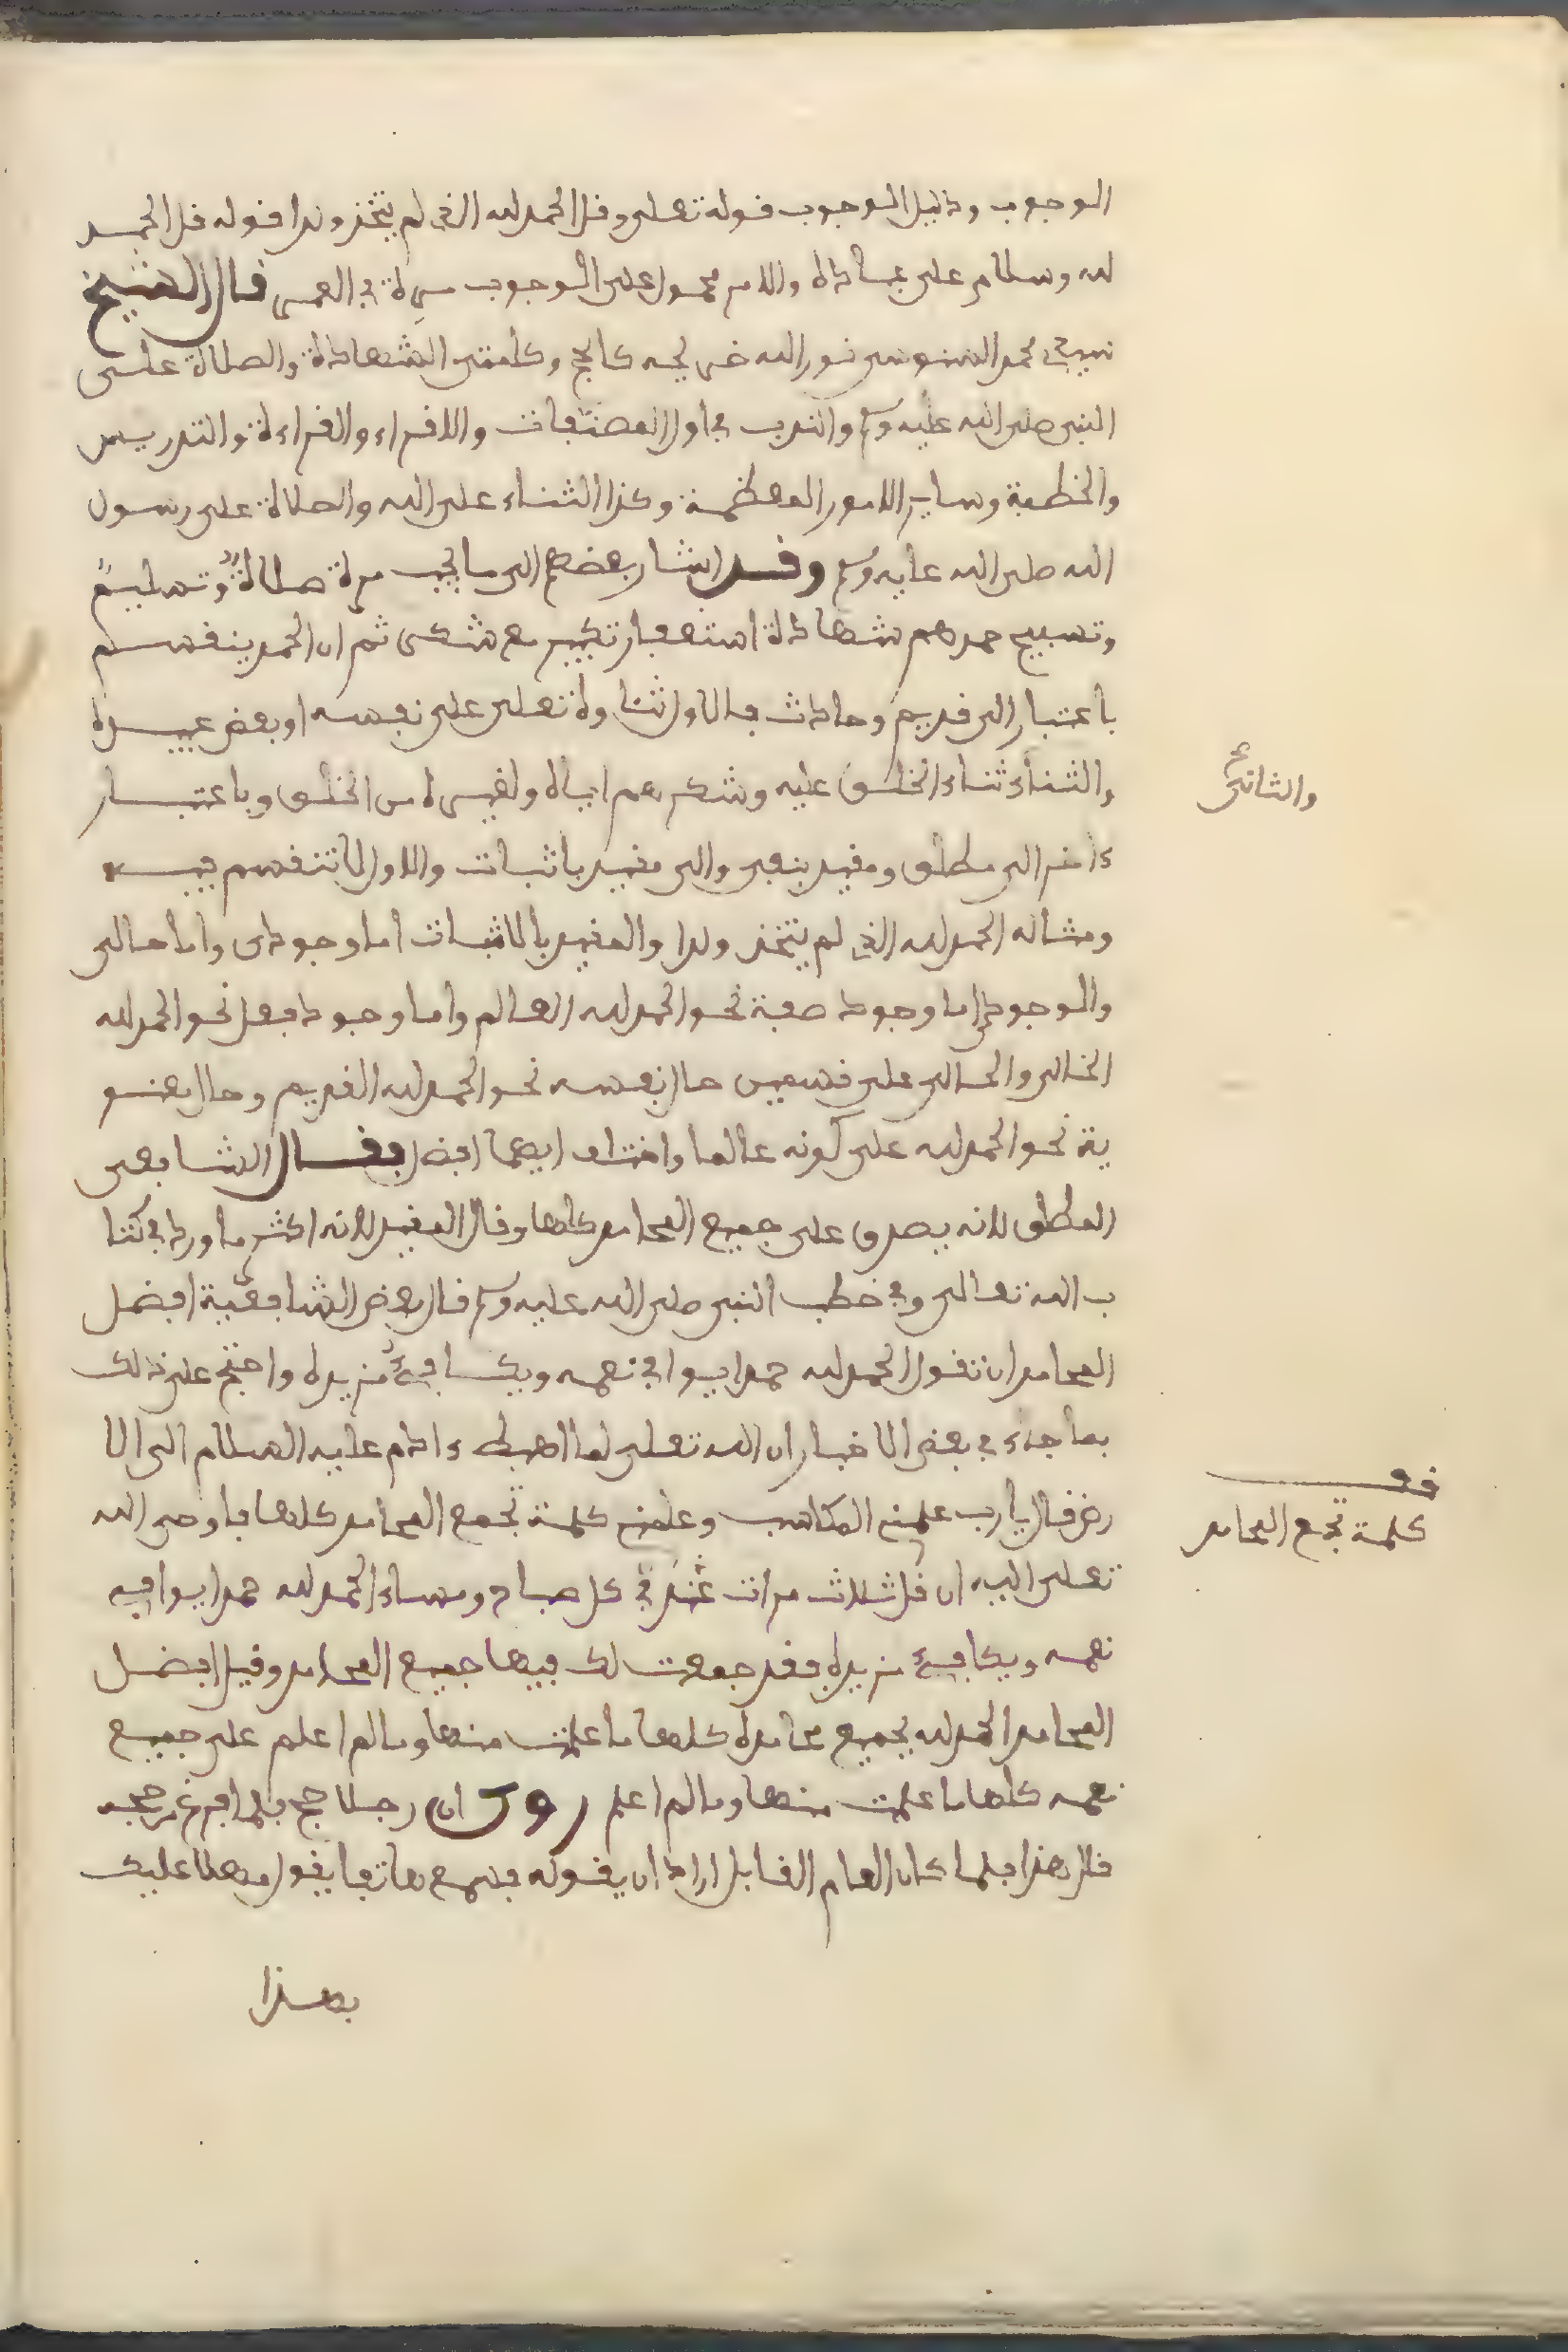 الوجوب ودليل الوجوب قوله تعلى وقل الحمد لله الذي لم يتخذ ولدا قوله قل الحمد
لله وسلام على عباده والامر محمول على الوجوب مرة في العمر قال الشيخ
سيدي محمد السنوسي نور الله ضريحه كالحج وكلمتي الشهادة والصلاة على
النبي صلى الله عليه وسلم والندب في اول المصنفات والاقراء والقراءة والتدريس
والخطبة وساير الامور المعظمة وكذا الثناء على الله والصلاة على رسول
الله صلى الله عليه وسلم وقد اشار بعضهم الى ما يجب مرة صلاة وتسليم
وتسبيح حمدهم شهادة استغفار تكبير مع شكر ثم ان الحمد ينقسم
باعتبار الى قديم وحادث فالاول ثناوه تعلى على نفسه او بعض عبيده
والثناء ثناء الخلق عليه وشكرهم اياه ولغيره من الخلق وباعتبار
ءاخر الى مطلق ومقيد بنفي والى مقيد باثبات والاول لا تنقسم فيه
ومثاله الحمد لله الذي لم يتخذ ولدا والمقيد بالاثبات اما وجودي واما حالي
والوجودي اما وجود صفة نحو الحمد لله العالم واما وجود فعل نحو الحمد لله
الخالق والحالي على قسمين حال نفسه نحو الحمد لله القديم وحال معنو
ية نحو الحمد لله على كونه عالما واختلف ايهما افضل فقال الشافعي
المطلق لانه يصدق على جميع المحامد كلها وقال المقيد لانه اكثر ما ورد في كتا
ب الله تعالى وفي خطب النبي صلى الله عليه وسلم قال بعض الشافعية افضل
المحامد ان تقول الحمد لله حمدا يوافي نعمه ويكافئ مزيده واحتج على ذلك
بما جاء في بعض الاخبار ان الله تعلى لما اهبط ءادم عليه السلام الى الا
رض قال يا رب علمني المكاسب وعلمني كلمة تجمع المحامد كلها فاوحى الله
تعلى اليه ان قل ثلاث مرات عند كل صباح ومساء الحمد لله حمدا يوافي
نعمه ويكافئ مزيده فقد جمعت لك فيها جميع المحامد وقيل افضل
المحامد الحمد لله بجميع محامده كلها ما علمت منها وما لم اعلم على جميع
نعمه كلها ما علمت منها وما لم اعلم روي ان رجلا حج فلما فرغ من حجه
قال هذا فلما كان العام القابل اراد ان يقوله فسمع هاتفا يقول مهلا عليك
بهذا
والثاني
قف
كلمة تجمع المحامد